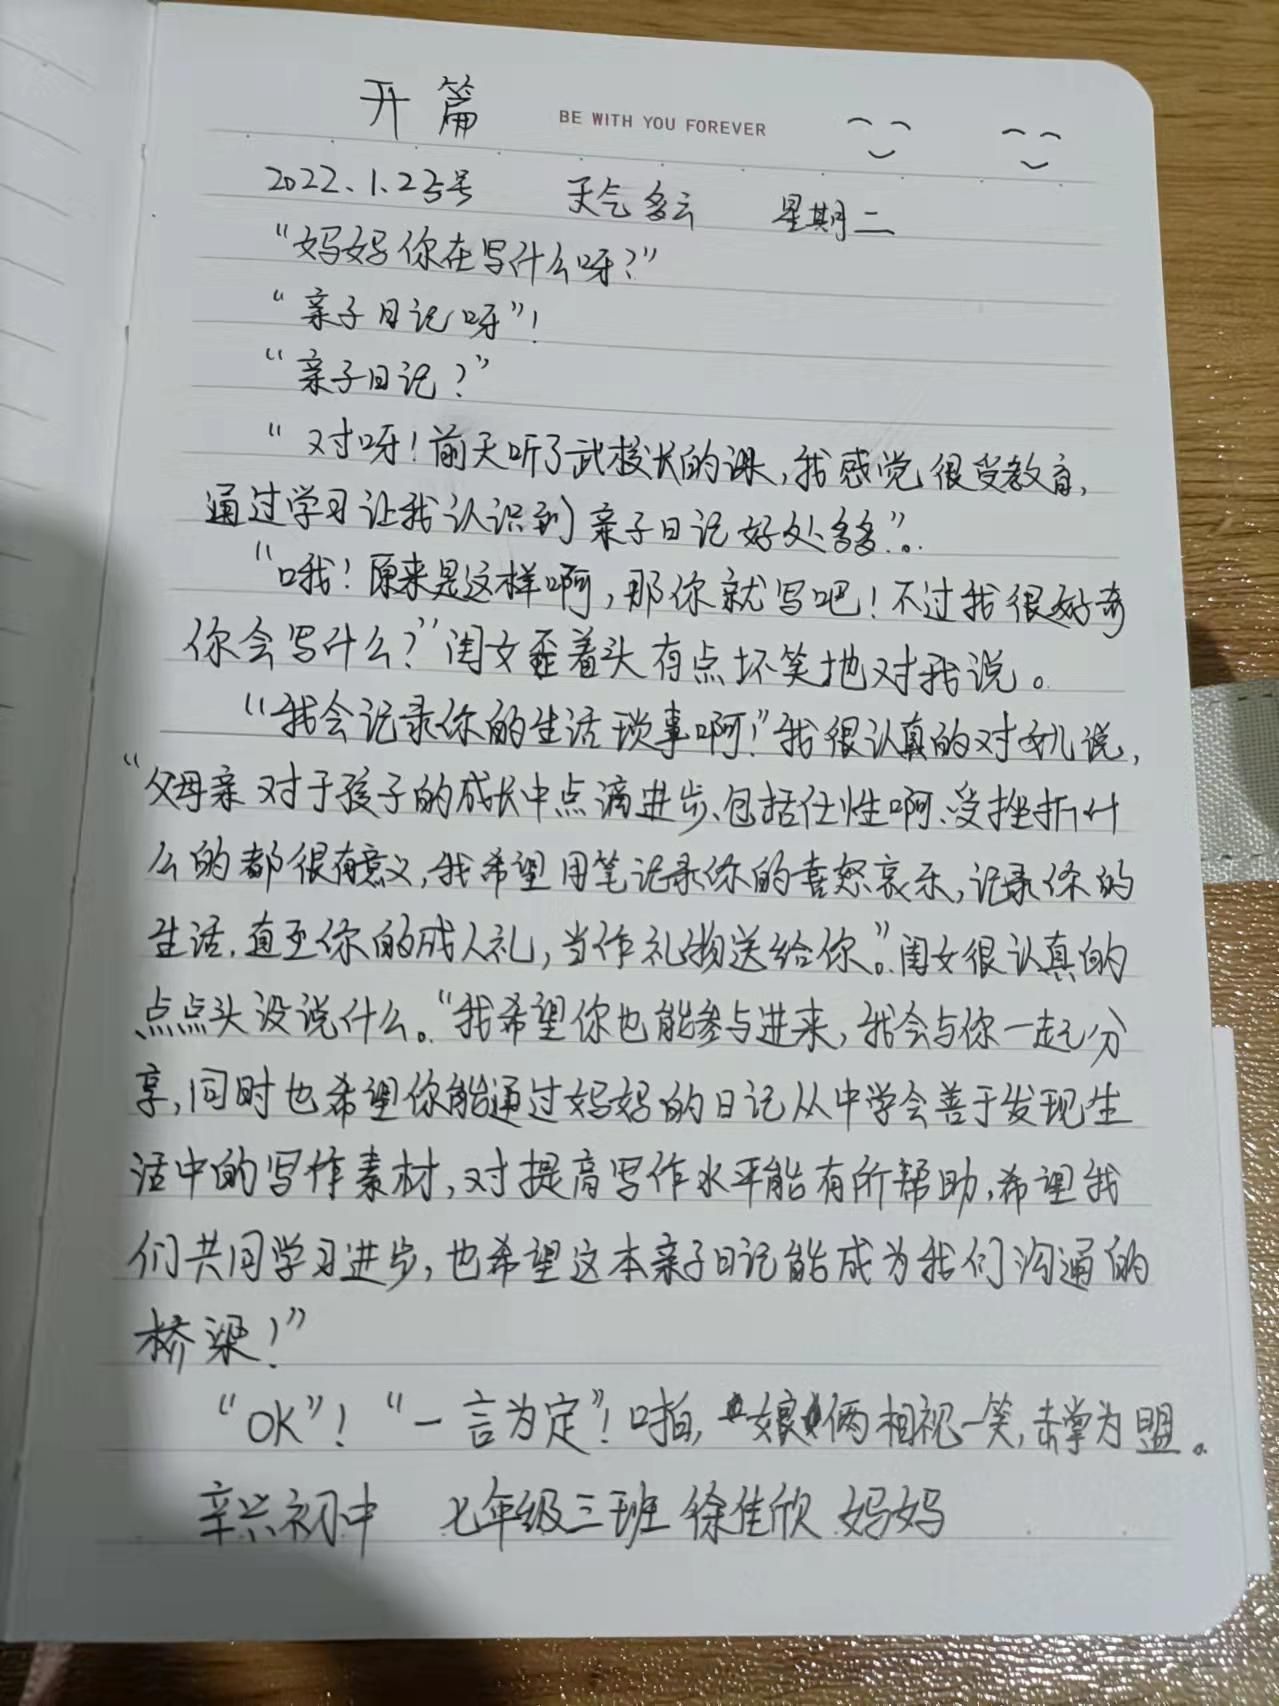 开篇 BE WITH YOU FOREVER
2022.1.25号 天气多云 星期二
“妈妈你在写什么呀?”
“亲子日记呀”!
“亲子日记?”
“对呀!前天听了武校长的课,我感觉很受教育,
通过学习让我认识到亲子日记好处多多”。
“哦!原来是这样啊,那你就写吧!不过我很好奇
你会写什么?”闺女歪着头有点坏笑地对我说。
“我会记录你的生活琐事啊!”我很认真的对女儿说,
“父母亲对于孩子的成长中点滴进步、包括任性啊、受挫折什
么的都很有意义,我希望用笔记录你的喜怒哀乐,记录你的
生活,直至你的成人礼,当作礼物送给你”。闺女很认真的
点点头没说什么。“我希望你也能参与进来,我会与你一起分
享,同时也希望你能通过妈妈的日记从中学会善于发现生
活中的写作素材,对提高写作水平能有所帮助,希望我
们共同学习进步,也希望这本亲子日记能成为我们沟通的
桥梁!”
“OK”!“一言为定”!啪,娘俩相视一笑,击掌为盟。
辛兴初中 七年级三班 徐佳欣 妈妈